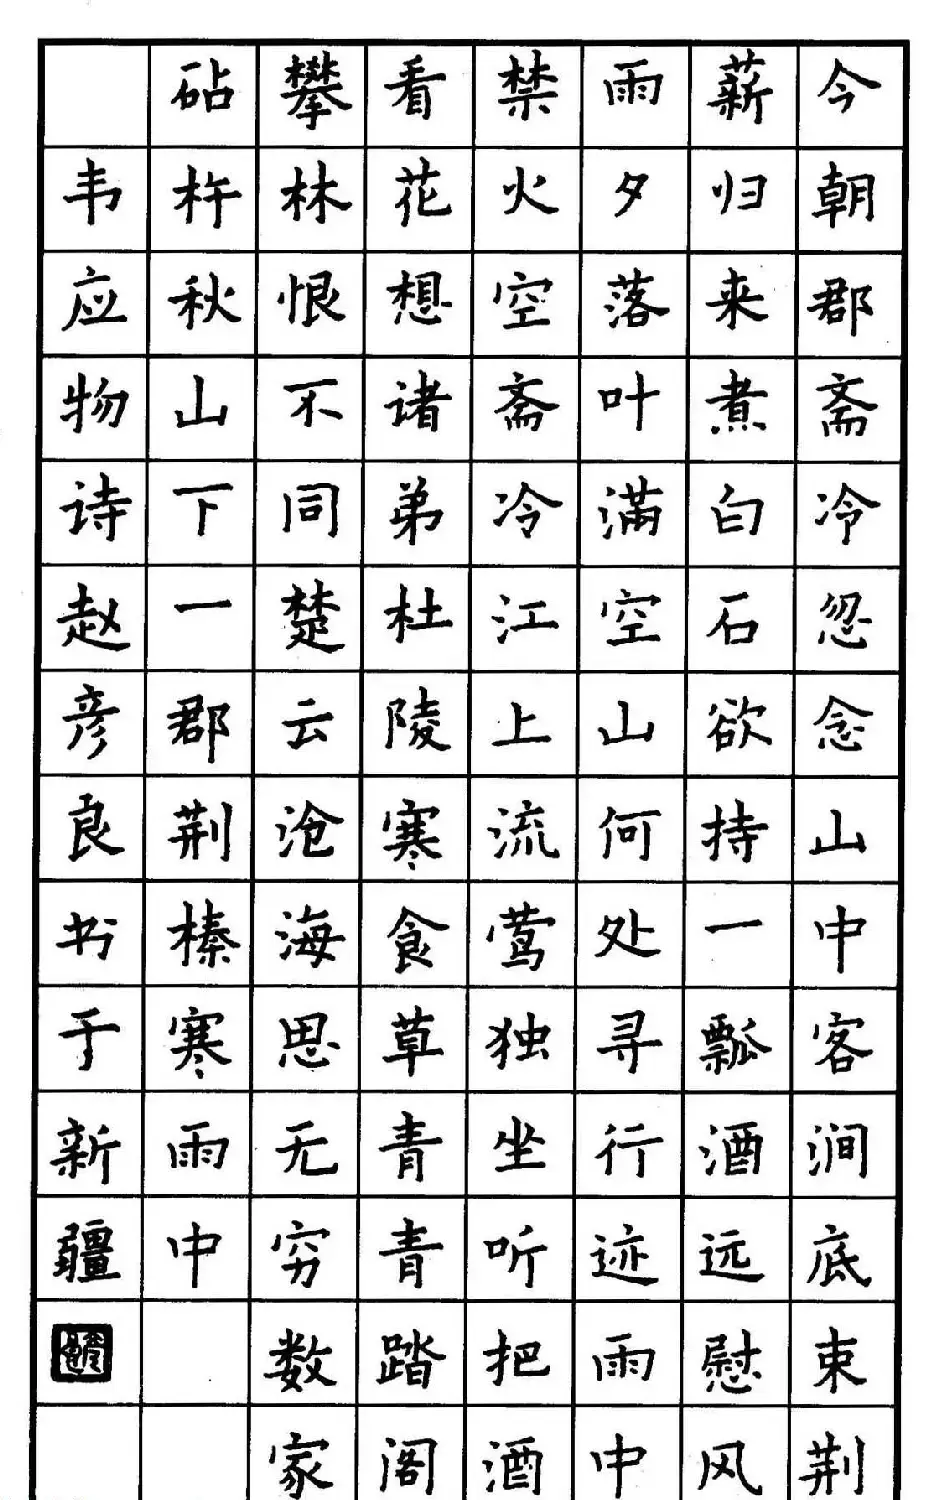 今朝郡斋冷忽念山中客涧底束荆
薪归来煮白石欲持一瓢酒远慰风
雨夕落叶满空山何处寻行迹雨中
禁火空斋冷江上流莺独坐听把酒
看花想诸弟杜陵寒食草青青踏阁
攀林恨不同楚云沧海思无穷数家
砧杵秋山下一郡荆榛寒雨中
韦应物诗赵彦良书于新疆